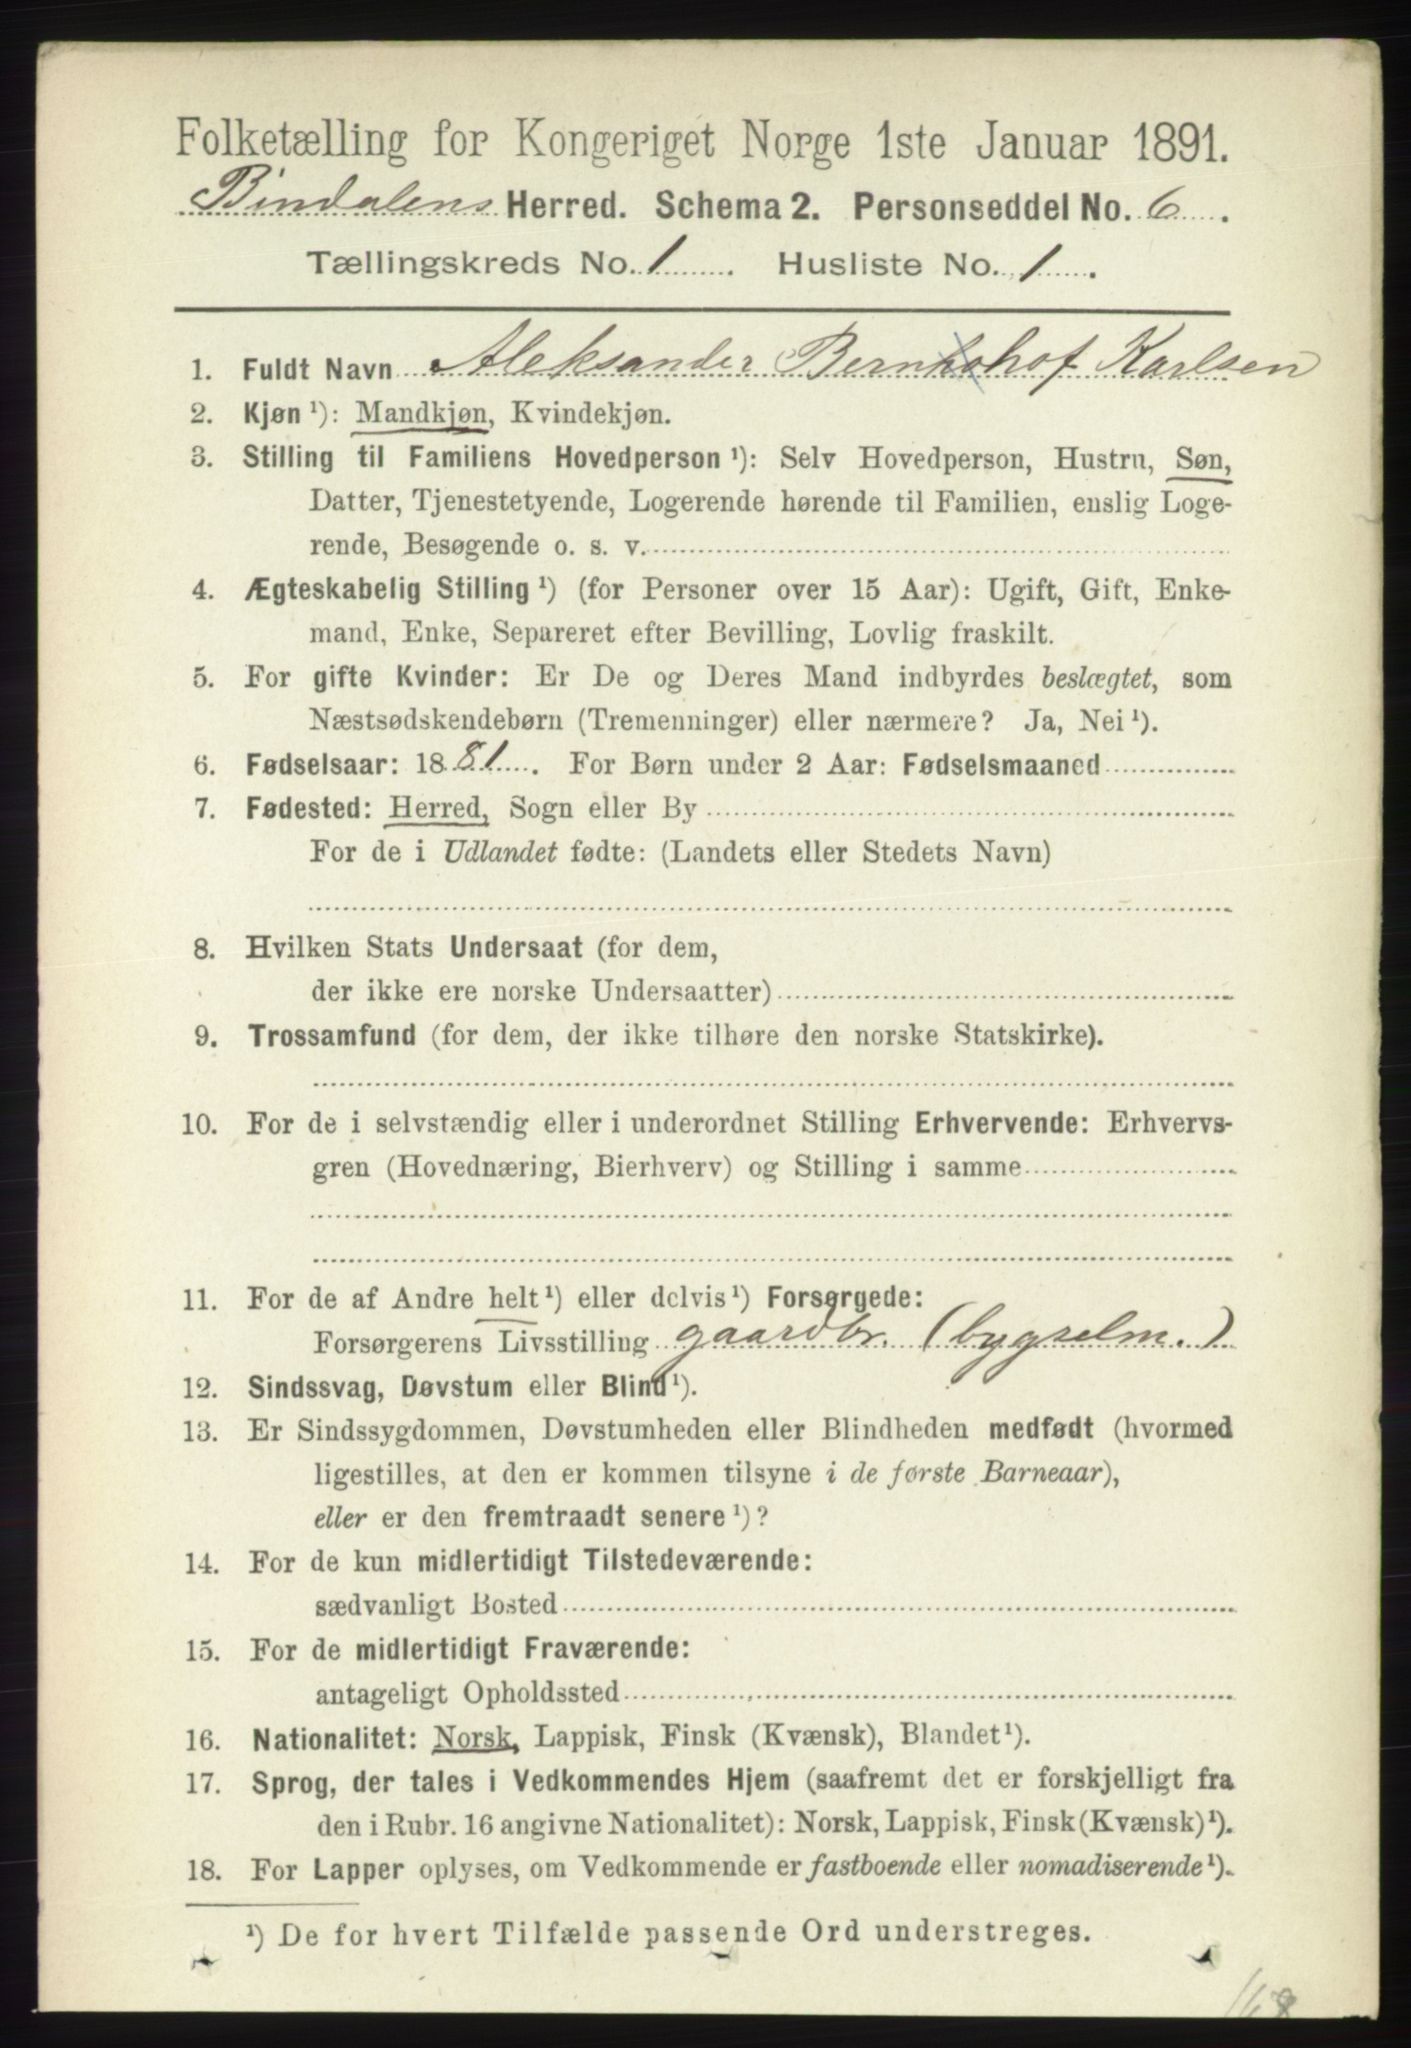 Folketælling for Kongeriget Norge 1ste Januar 1891.
Bindalens Herred. Schema 2. Personseddel No. 6.
Tællingskreds No. 1. Husliste No. 1.
1. Fuldt Navn Aleksander Bernhohof Karlsen
2. Kjøn ¹): Mandkjøn, Kvindekjøn.
3. Stilling til Familiens Hovedperson ¹): Selv Hovedperson, Hustru, Søn,
Datter, Tjenestetyende, Logerende hørende til Familien, enslig Loge-
rende, Besøgende o. s. v.
4. Ægteskabelig Stilling ¹) (for Personer over 15 Aar): Ugift, Gift, Enke-
mand, Enke, Separeret efter Bevilling, Lovlig fraskilt.
5. For gifte Kvinder: Er De og Deres Mand indbyrdes beslægtet, som
Næstsødskendebørn (Tremenninger) eller nærmere? Ja, Nei ¹).
6. Fødselsaar: 1881. For Børn under 2 Aar: Fødselsmaaned
7. Fødested: Herred, Sogn eller By
For de i Udlandet fødte: (Landets eller Stedets Navn)
8. Hvilken Stats Undersaat (for dem,
der ikke ere norske Undersaatter)
9. Trossamfund (for dem, der ikke tilhøre den norske Statskirke).
10. For de i selvstændig eller i underordnet Stilling Erhvervende: Erhvervs-
gren (Hovednæring, Bierhverv) og Stilling i samme
11. For de af Andre helt ¹) eller delvis ¹) Forsørgede:
Forsørgerens Livsstilling gaardbr. (bygselm.)
12. Sindssvag, Døvstum eller Blind ¹).
13. Er Sindssygdommen, Døvstumheden eller Blindheden medfødt (hvormed
ligestilles, at den er kommen tilsyne i de første Barneaar),
eller er den fremtraadt senere ¹)?
14. For de kun midlertidigt Tilstedeværende:
sædvanligt Bosted
15. For de midlertidigt Fraværende:
antageligt Opholdssted
16. Nationalitet: Norsk, Lappisk, Finsk (Kvænsk), Blandet ¹).
17. Sprog, der tales i Vedkommendes Hjem (saafremt det er forskjelligt fra
den i Rubr. 16 angivne Nationalitet): Norsk, Lappisk, Finsk (Kvænsk) ¹).
18. For Lapper oplyses, om Vedkommende er fastboende eller nomadiserende ¹).
¹) De for hvert Tilfælde passende Ord understreges.
168